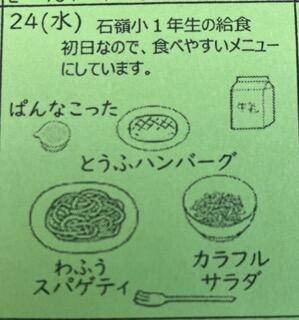 24(水) 石嶺小1年生の給食
初日なので、食べやすいメニュー
にしています。
牛乳
ぱんなこった
とうふハンバーグ
わふう
スパゲティ
カラフル
サラダ